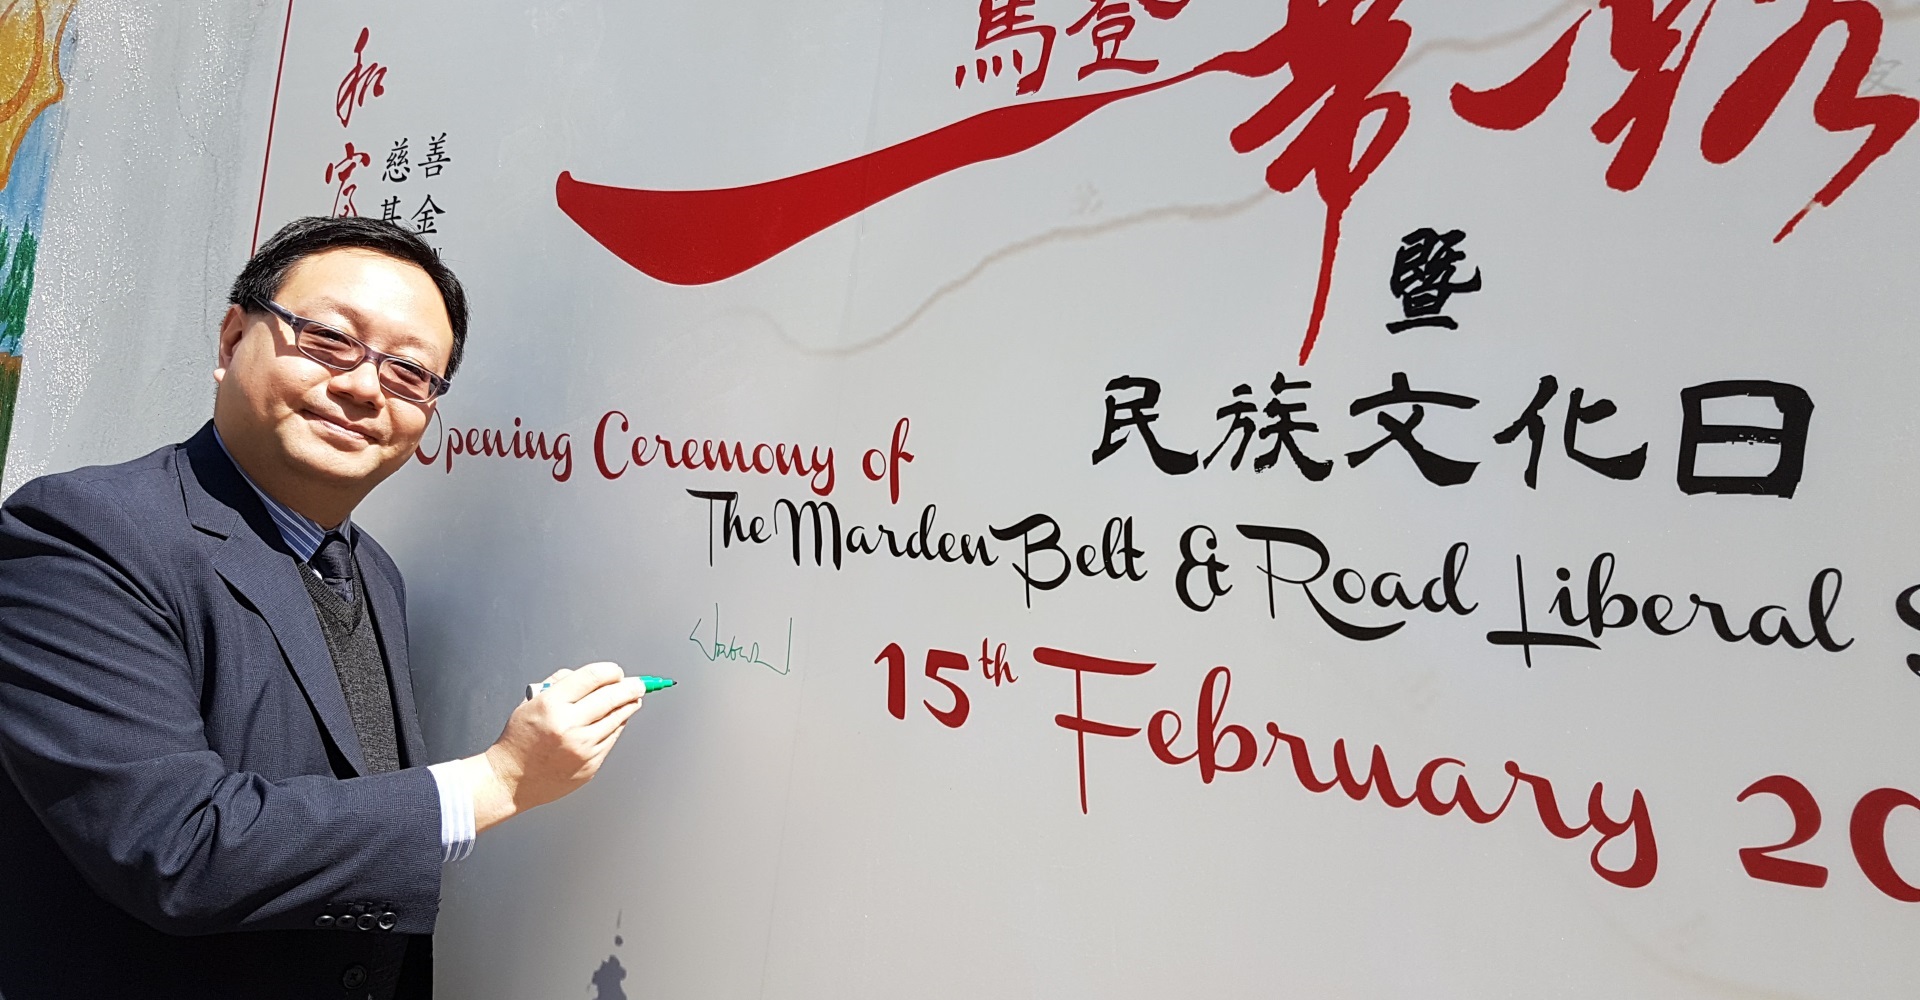 和富
慈善
基金
馬登
一帶一路
暨
民族文化日
Opening Ceremony of
The Marden Belt & Road Liberal
15th February 20